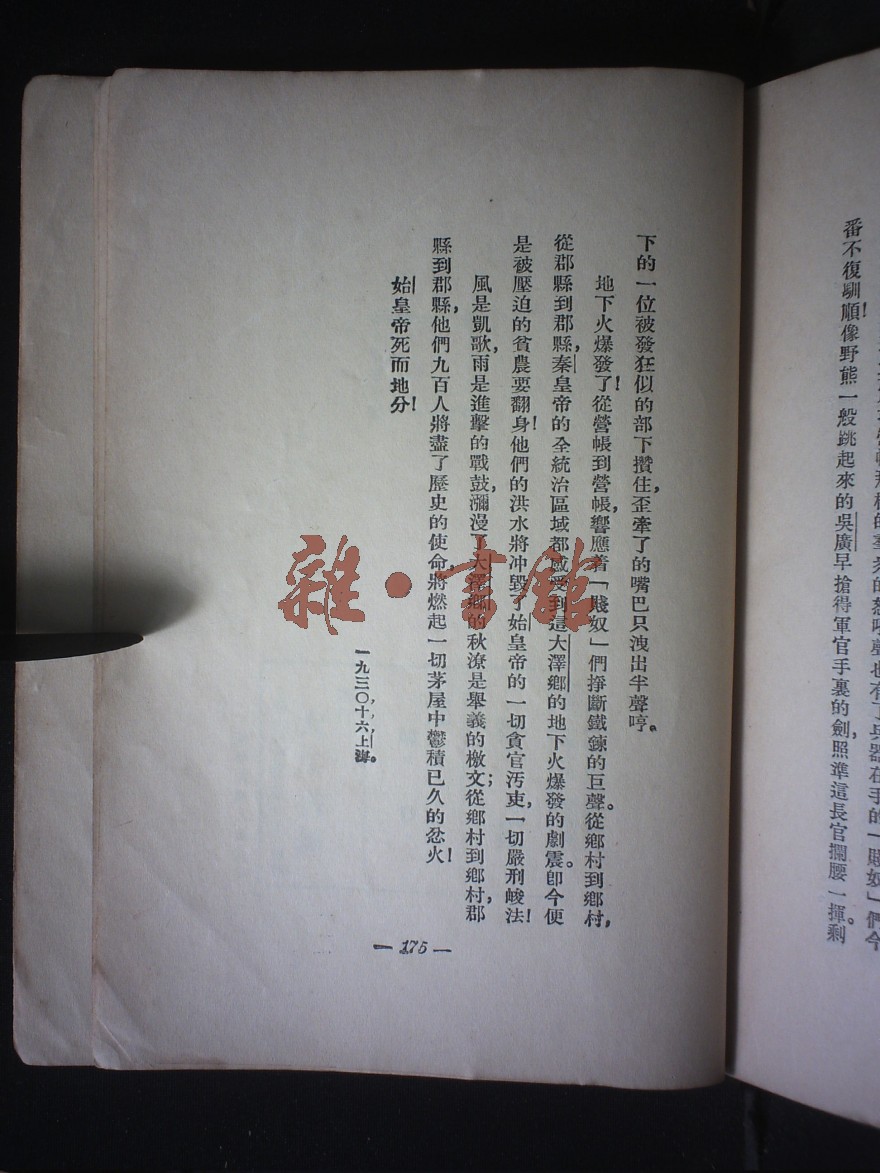 番不復馴順！像野熊一般跳起來的吳廣早搶得軍官手裏的劍，照準這長官攔腰一揮。剩
下的一位被發狂似的部下攢住，歪牽了的嘴巴只洩出半聲哼。
地下火爆發了！從營帳到營帳，響應着「賤奴」們掙斷鐵鍊的巨聲。從鄉村到鄉村，
從郡縣到郡縣，秦皇帝的全統治區域都感受到這大澤鄉的地下火爆發的劇震。即今便
是被壓迫的貧農要翻身！他們的洪水將冲毀了始皇帝的一切貪官汚吏，一切嚴刑峻法！
風是凱歌，雨是進擊的戰鼓，瀰漫了大澤鄉的秋潦是舉義的檄文；從鄉村到鄉村，郡
縣到郡縣，他們九百人將盡了歷史的使命，將燃起一切茅屋中鬱積已久的忿火！
始皇帝死而地分！
一九三〇，十，六，上海。
— 175 —
雜·書館